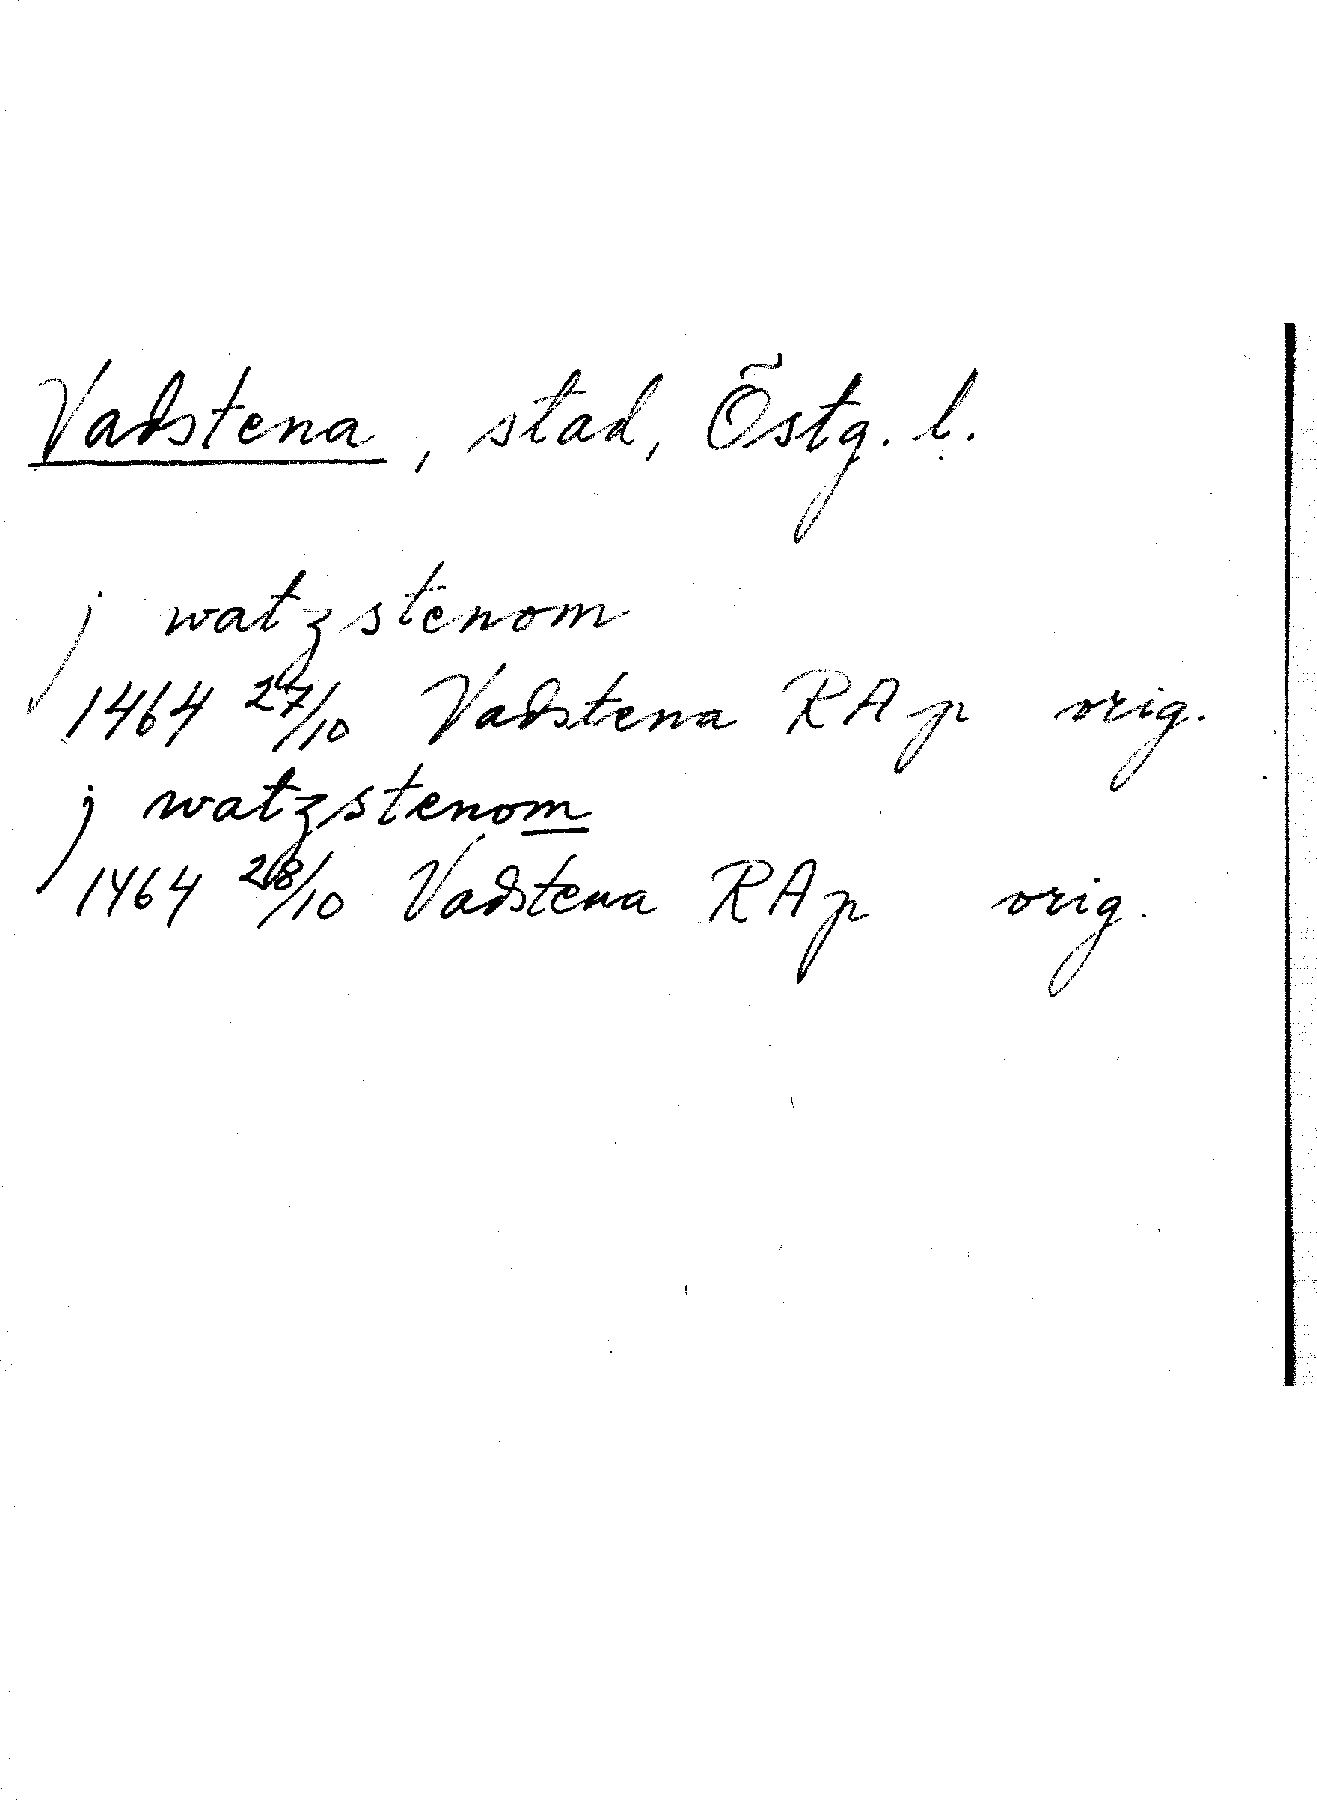 Vadstena, stad, Östg. l.
j watzstenom
1464 27/10 Vadstena RAp orig.
j watzstenom
1464 28/10 Vadstena RAp orig.